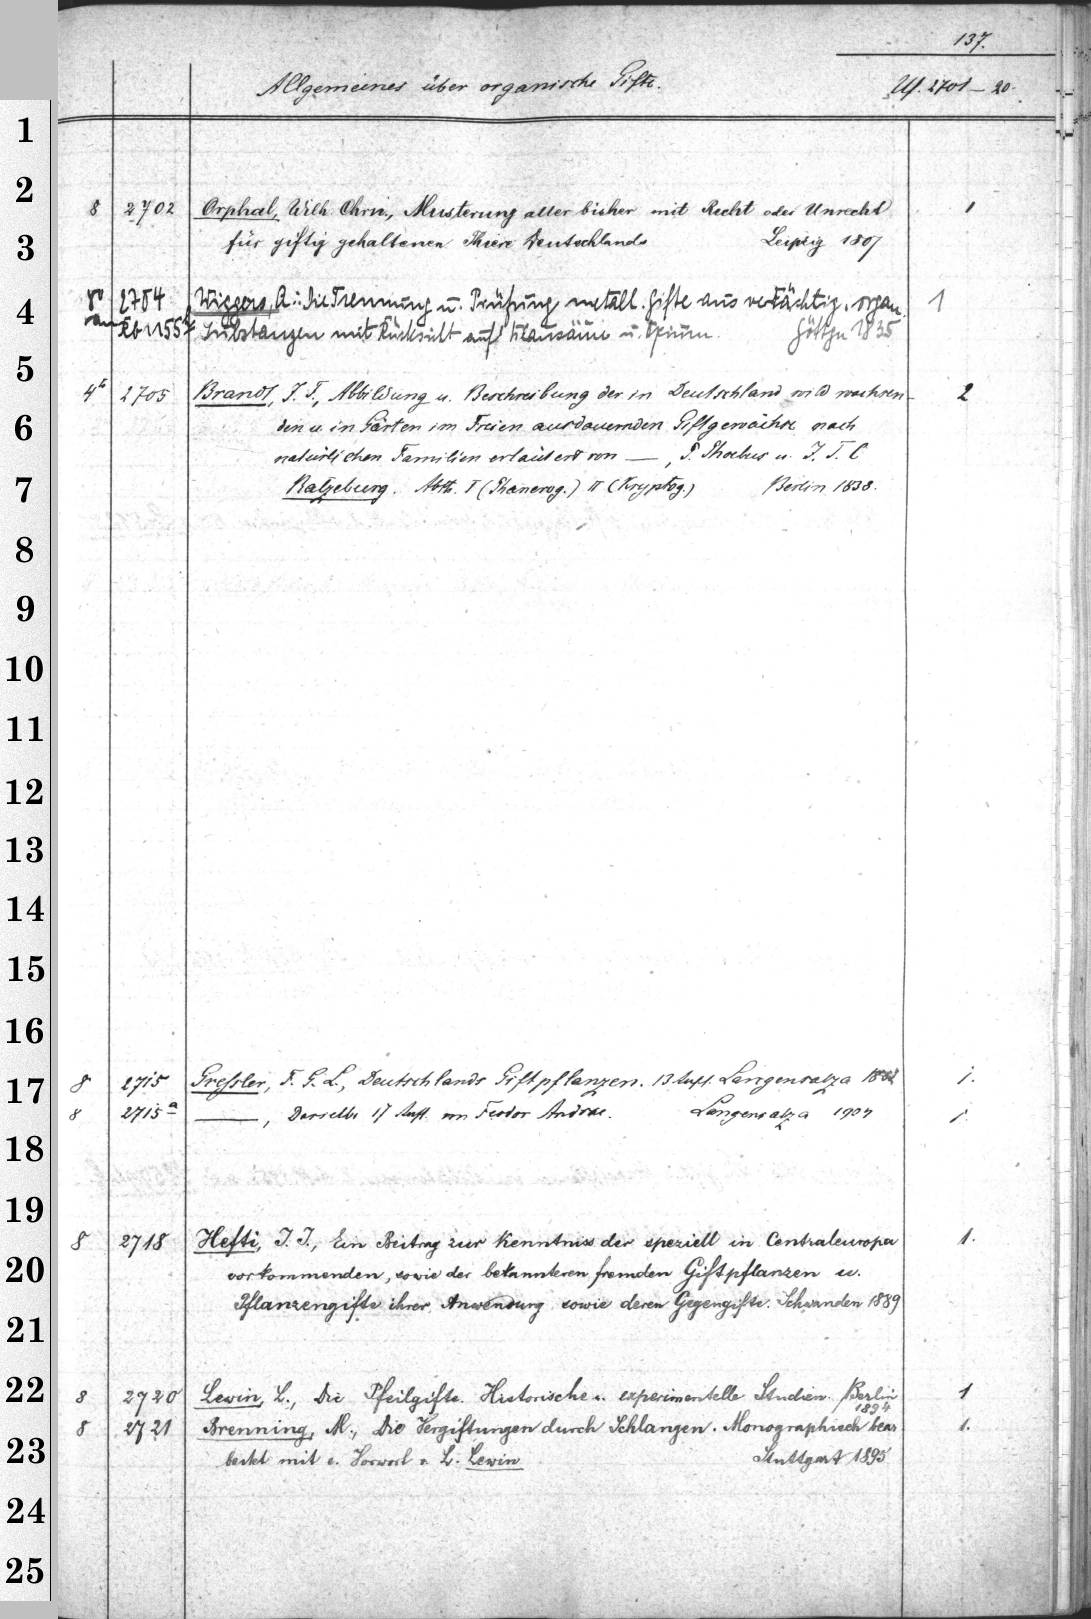 137.
Allgemeines über organische Gifte. Uf. 2701-20.
1
2
8 2702 Orphal, Wilh. Chrn., Musterung aller bisher mit Recht oder Unrecht 1
3
für giftig gehaltenen Thiere Deutschlands Leipzig 1807
8° 2704 Wiggers, A.: Die Trennung u. Prüfung metall. Gifte aus verdächtig. organ. 1
4
an Kb 1155 Substanzen mit Rücksicht auf Blausäure u. Opium. Göttgn 1835
5
4° 2705 Brandt, J. F., Abbildung u. Beschreibung der in Deutschland wild wachsen- 2
6
den u. in Gärten im Freien ausdauernden Giftgewächse nach
natürlichen Familien erläutert von —, P. Phoebus u. J. T. C
7
Ratzeburg. Abth. I (Phanerog.) II (Kryptog.) Berlin 1838.
8
9
10
11
12
13
14
15
16
17
8 2715 Gressler, F. G. L., Deutschlands Giftpflanzen. 13. Aufl. Langensalza 1.
8 2715a —, Dasselbe 17 Aufl. von Feodor Andrae. Langensalza 1904 1.
18
19
8 2718 Hefti, J. J., Ein Beitrag zur Kenntniss der speziell in Centraleuropa 1.
20
vorkommenden, sowie der bekannteren fremden Giftpflanzen u.
Pflanzengifte ihrer Anwendung sowie deren Gegengifte. Schwanden 1889
21
22
8 2720 Lewin, L., Die Pfeilgifte. Historische u. experimentelle Studien. Berlin 1
1894
8 2721 Brenning, M., Die Vergiftungen durch Schlangen. Monographisch bear- 1.
23
beitet mit e. Vorwort v. L. Lewin Stuttgart 1895
24
25